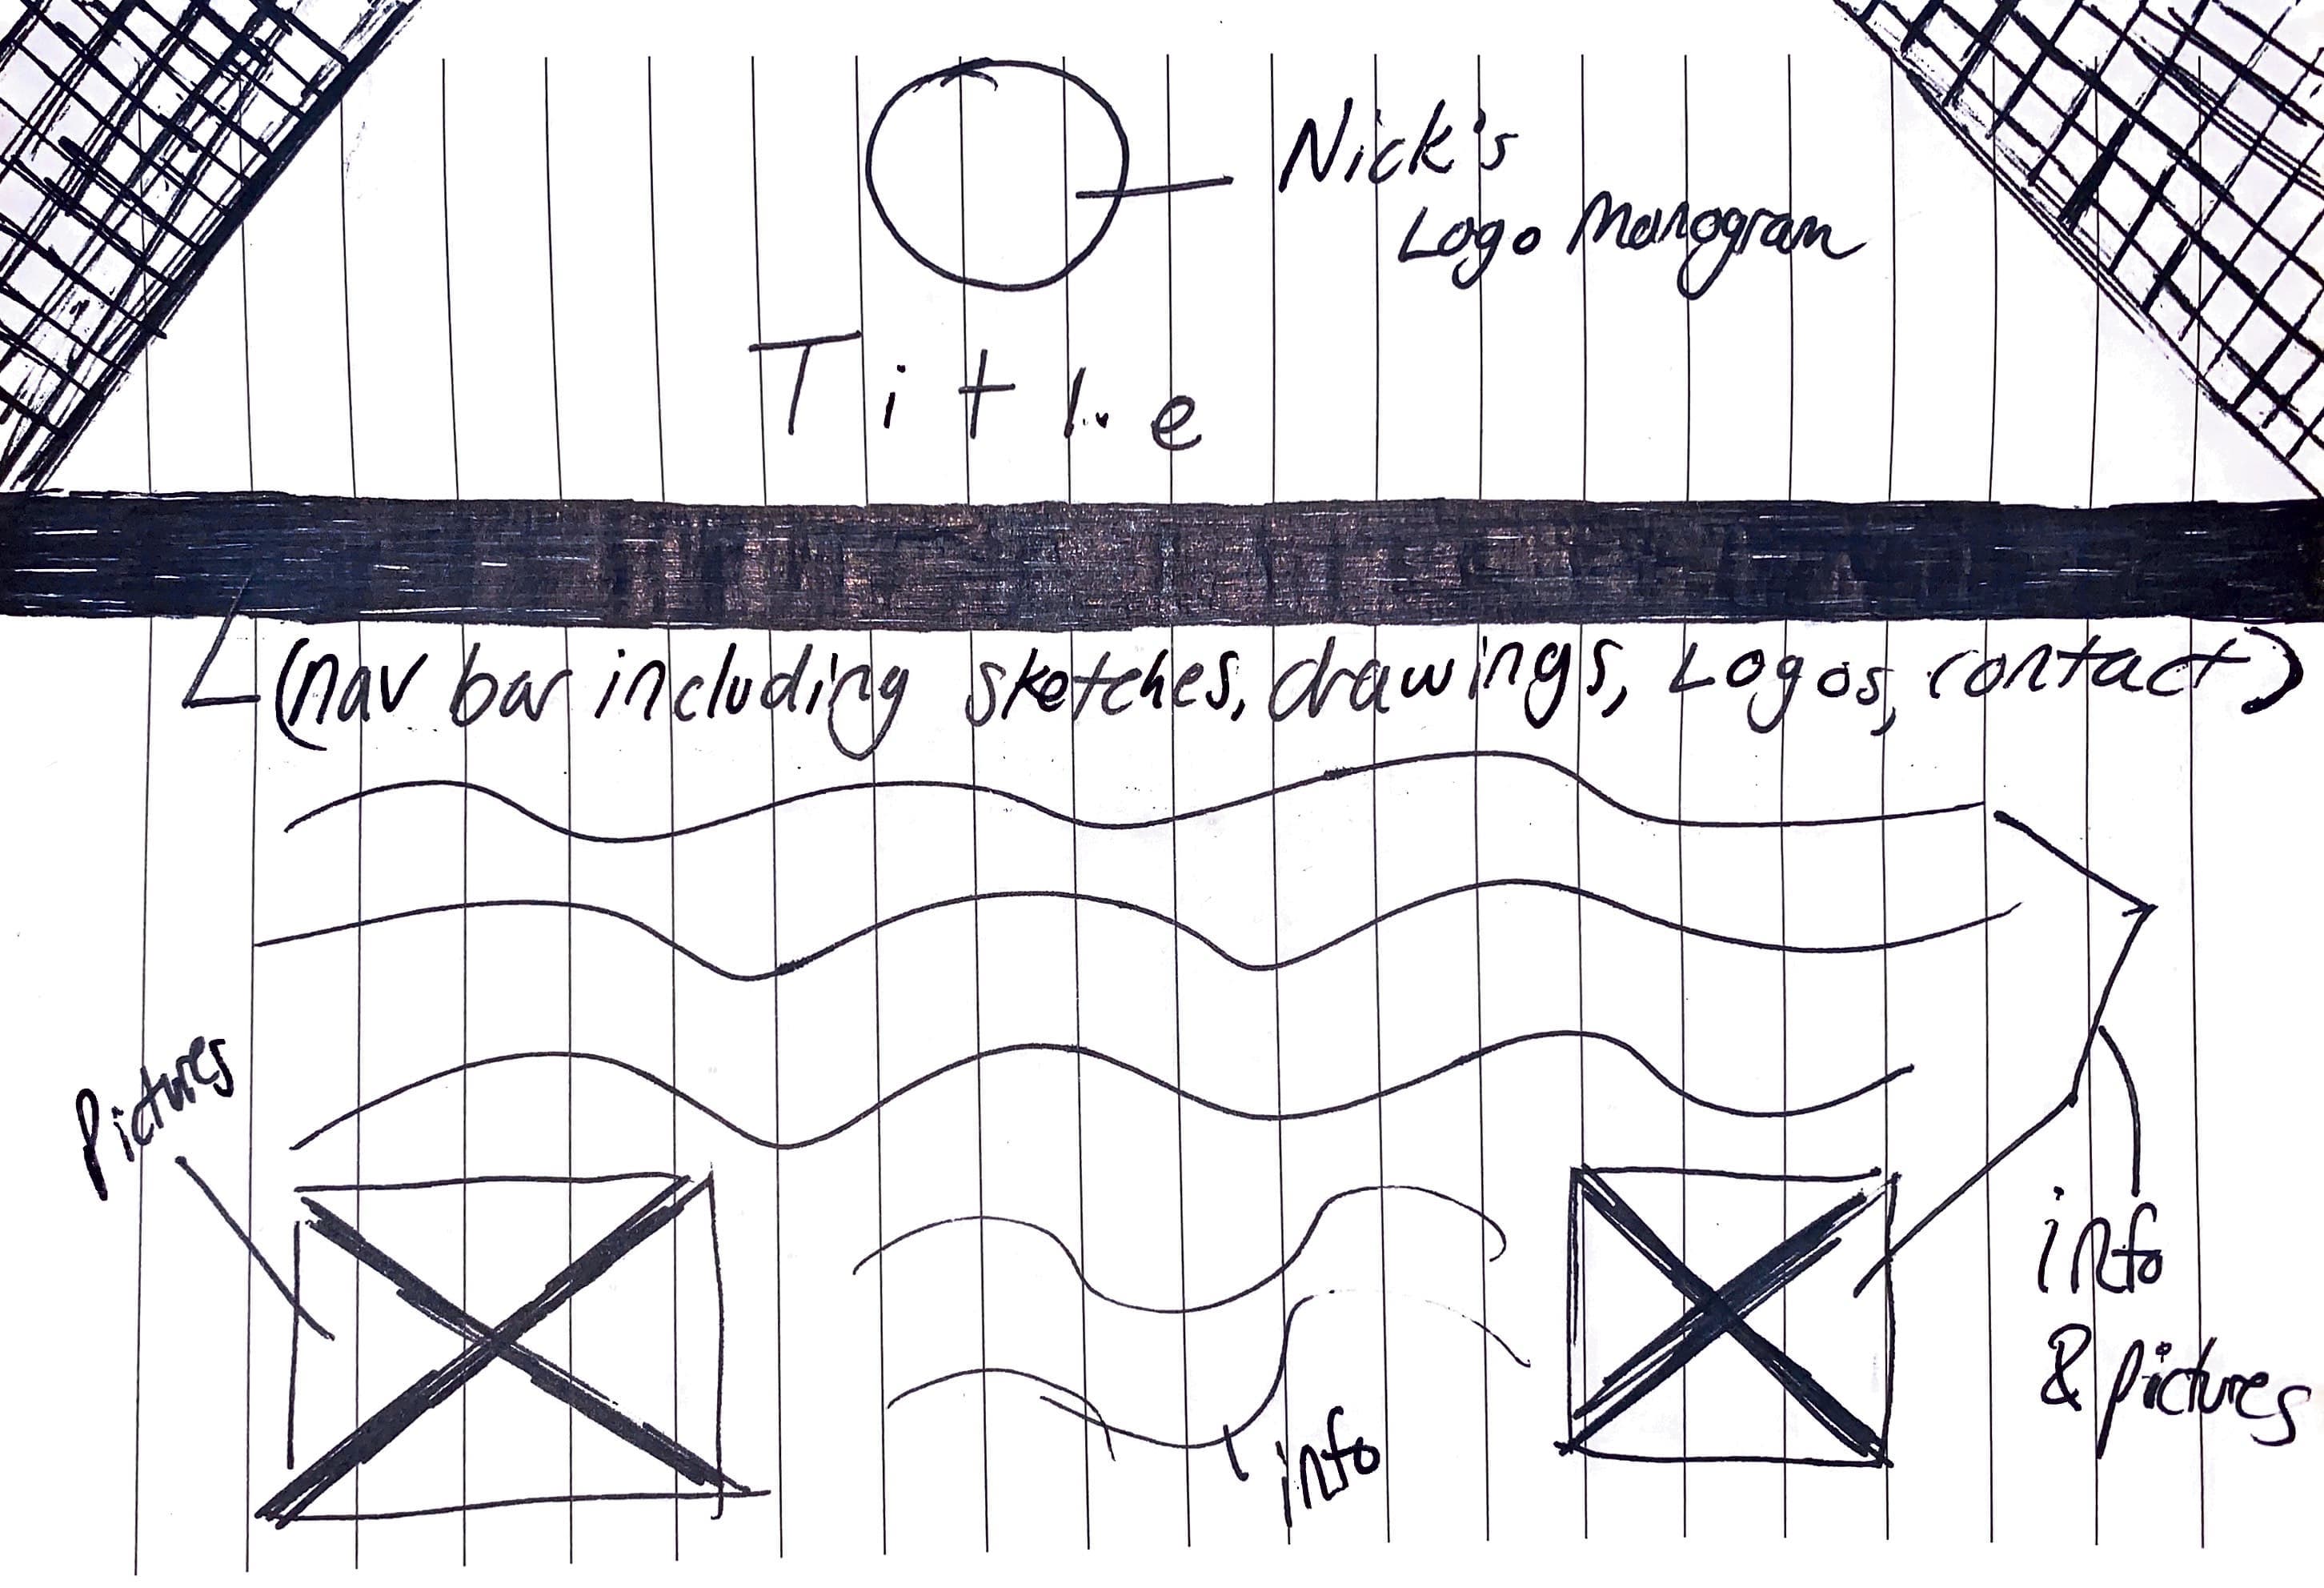 Nick's
Logo Monogram
Title
(nav bar including sketches, drawings, Logos, contact)
Pictures
info
& pictures
info